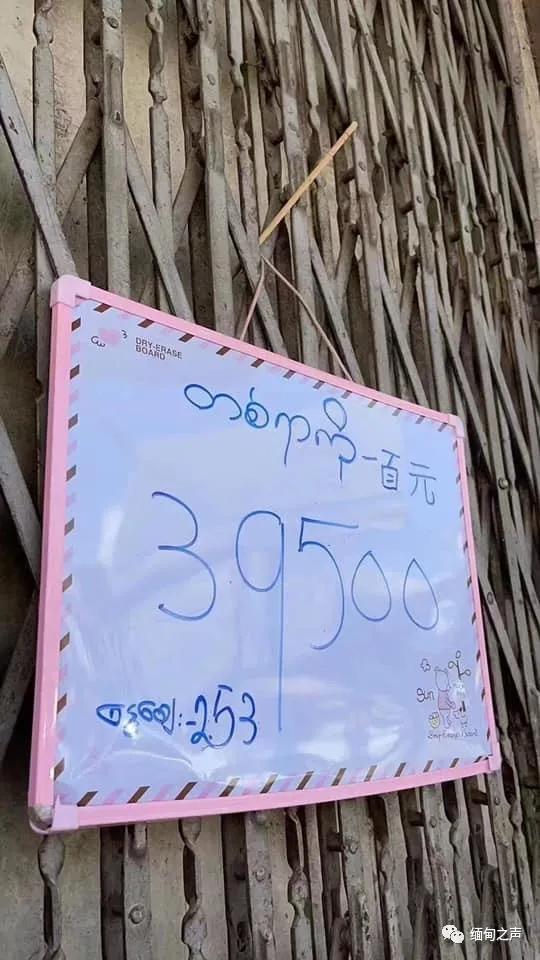 DRY-ERASE
BOARD
တစ်ရာကို 一百元
39500
ငွေဈေး-253
Sun
缅甸之声